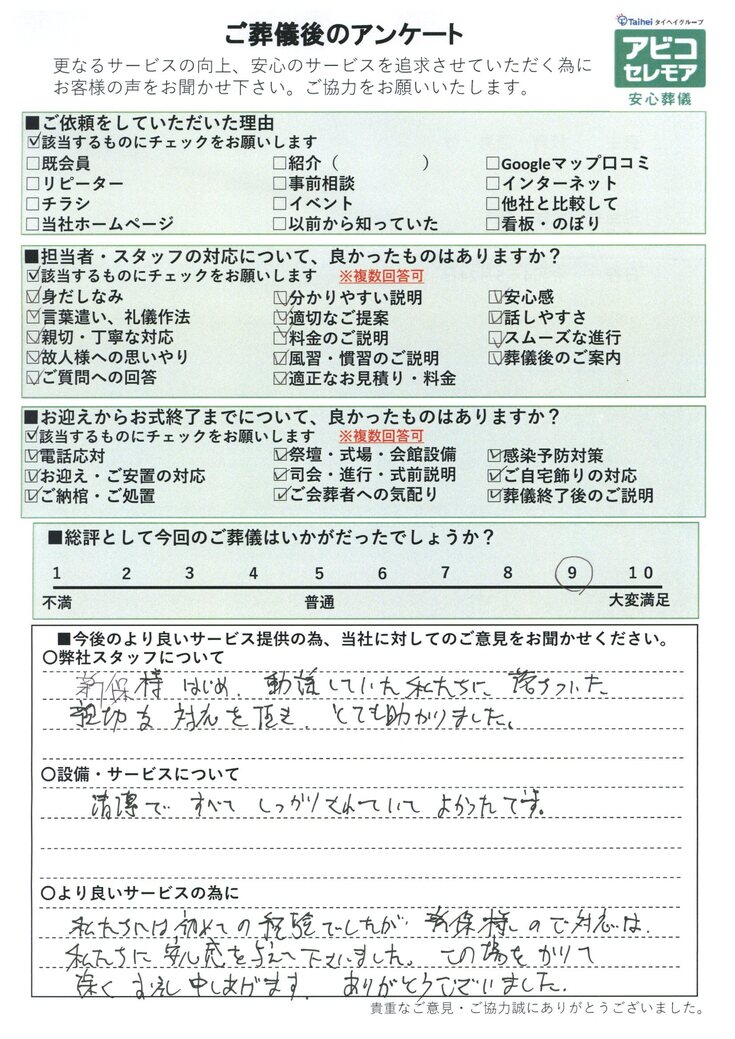 ご葬儀後のアンケート
Taihei タイヘイグループ
アビコ
セレモア
安心葬儀
更なるサービスの向上、安心のサービスを追求させていただく為に
お客様の声をお聞かせ下さい。ご協力をお願いいたします。
■ご依頼をしていただいた理由
☑該当するものにチェックをお願いします
□既会員 □紹介（ ） □Googleマップ口コミ
□リピーター □事前相談 □インターネット
□チラシ □イベント □他社と比較して
□当社ホームページ □以前から知っていた □看板・のぼり
■担当者・スタッフの対応について、良かったものはありますか？
☑該当するものにチェックをお願いします ※複数回答可
☑身だしなみ ☑分かりやすい説明 ☑安心感
☑言葉遣い、礼儀作法 ☑適切なご提案 ☑話しやすさ
☑親切・丁寧な対応 ☑料金のご説明 ☑スムーズな進行
☑故人様への思いやり ☑風習・慣習のご説明 ☑葬儀後のご案内
☑ご質問への回答 ☑適正なお見積り・料金
■お迎えからお式終了までについて、良かったものはありますか？
☑該当するものにチェックをお願いします ※複数回答可
☑電話応対 ☑祭壇・式場・会館設備 ☑感染予防対策
☑お迎え・ご安置の対応 ☑司会・進行・式前説明 ☑ご自宅飾りの対応
☑ご納棺・ご処置 ☑ご会葬者への気配り ☑葬儀終了後のご説明
■総評として今回のご葬儀はいかがだったでしょうか？
1 2 3 4 5 6 7 8 9 10
不満 普通 大変満足
■今後のより良いサービス提供の為、当社に対してのご意見をお聞かせください。
〇弊社スタッフについて
新保様はじめ、動揺していた私たちに落ちついた
親切な対応を頂き、とても助かりました。
〇設備・サービスについて
清潔ですべてしっかりされていてよかったです。
〇より良いサービスの為に
私たちには初めての経験でしたが新保様の対応は、
私たちに安心感を与えて下さいました。この場をかりて
深くお礼申しあげます。ありがとうございました。
貴重なご意見・ご協力誠にありがとうございました。